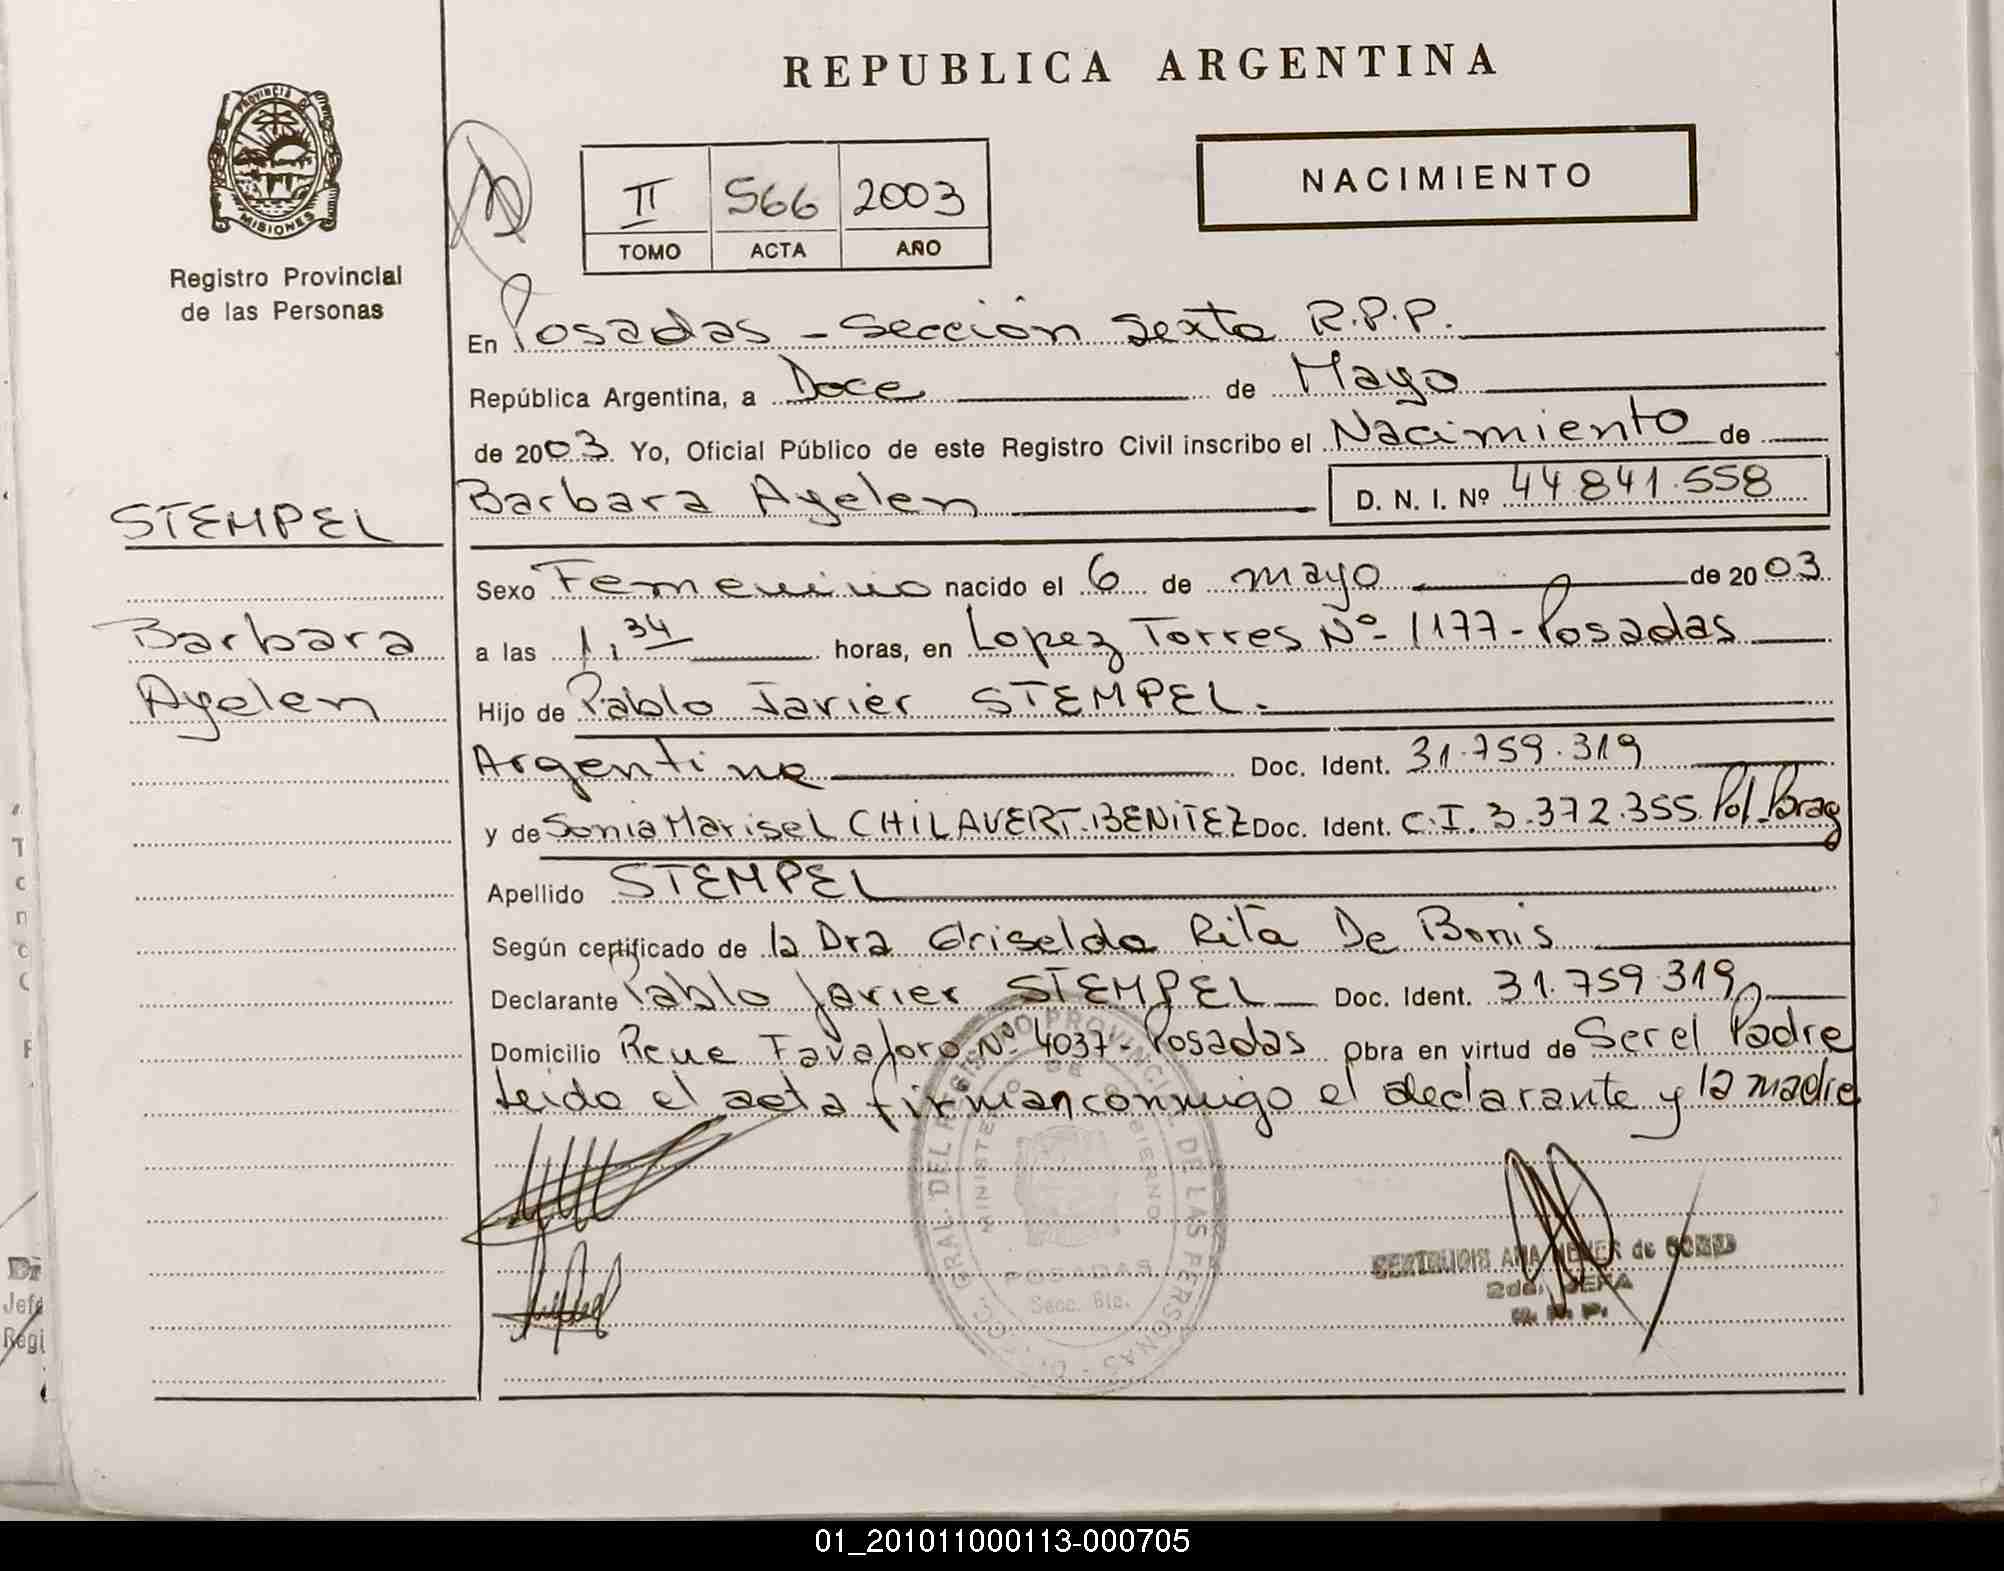 REPUBLICA ARGENTINA
PROVINCIA DE
MISIONES
Registro Provincial
de las Personas
II 566 2003
TOMO ACTA AÑO
NACIMIENTO
En Posadas - Sección Sexta R.P.P.
República Argentina, a Doce de Mayo
de 2003 Yo, Oficial Público de este Registro Civil inscribo el Nacimiento de
Barbara Ayelen D. N. I. Nº 44.841.558
STEMPEL
Barbara
Ayelen
Sexo Femenino nacido el 6 de mayo de 2003
a las 1,34 horas, en Lopez Torres Nº 1177 - Posadas
Hijo de Pablo Javier STEMPEL.
Argentino Doc. Ident. 31.759.319
y de Sonia Marisel CHILAVERT BENITEZ Doc. Ident. C.I. 3.372.355. Pol.
Apellido STEMPEL
Según certificado de la Dra Griselda Rita De Bonis
Declarante Pablo Javier STEMPEL Doc. Ident. 31.759.319
Domicilio Rene Nº 4037 - Posadas Obra en virtud de Ser el Padre
Leido el acta firman conmigo el declarante y la madre
GRAL. DEL REGISTRO PROVINCIAL DE LAS PERSONAS
MINISTERIO DE GOBIERNO
POSADAS
Secc. 6ta.
ANA de
2da. JEFA
01_201011000113-000705